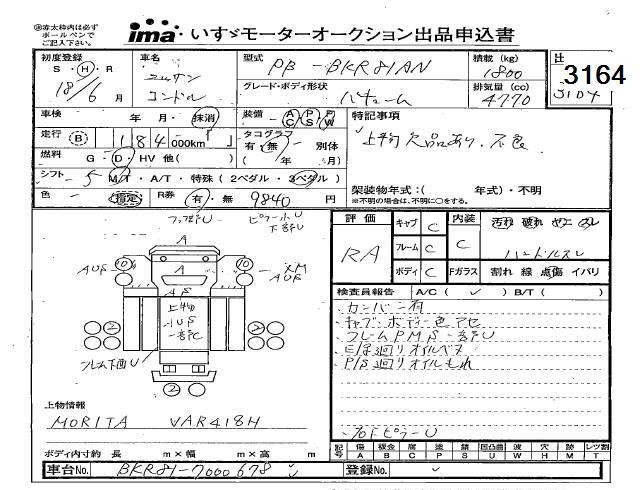 ※赤太枠内は必ず
ボールペンで
ご記入下さい。
ima いすゞモーターオークション出品申込書
初度登録 S・H・R 18/6月
車名 ニッサン コンドル
型式 PB-BKR81AN
積載(kg) 1800
グレード・ボディ形状 バキューム
排気量(cc) 4770
3164
3164
車検 年 月・抹消
装備 AC PS PW
特記事項
走行 B 184000km
タコグラフ 有・無 別体
(年 月)
上物欠品あり、不良
燃料 G・D・HV 他( )
シフト 5 M/T・A/T・特殊(2ペダル)3ペダル)
架装物年式:( 年式)・不明
※不明の場合は、不明に○をする。
色 (指定)
R券 有・無 9840円
評価 RA
キャブ C
フレーム C
ボディ C
内装 C
Fガラス
割れ 線 点傷 イバリ
検査員報告 A/C( ✓ ) B/T( )
カンバン有
キャブ・ボデー色アセ
フレームPMS一部U
E/g廻りオイルベタ
P/S廻りオイルもれ
ピラーU
ピラー小U
下部U
A
AUS
A S
上物
フレム下回U
上物情報
MORITA VAR418H
ボディ内寸約 長 m×幅 m×高 m
記号 傷 A 板金 B 腐 C 塗 P 錆 S 凹凸曲 U 波 W 穴 H 跡 M レツ割 T
車台No. BKR81-7000678
登録No.